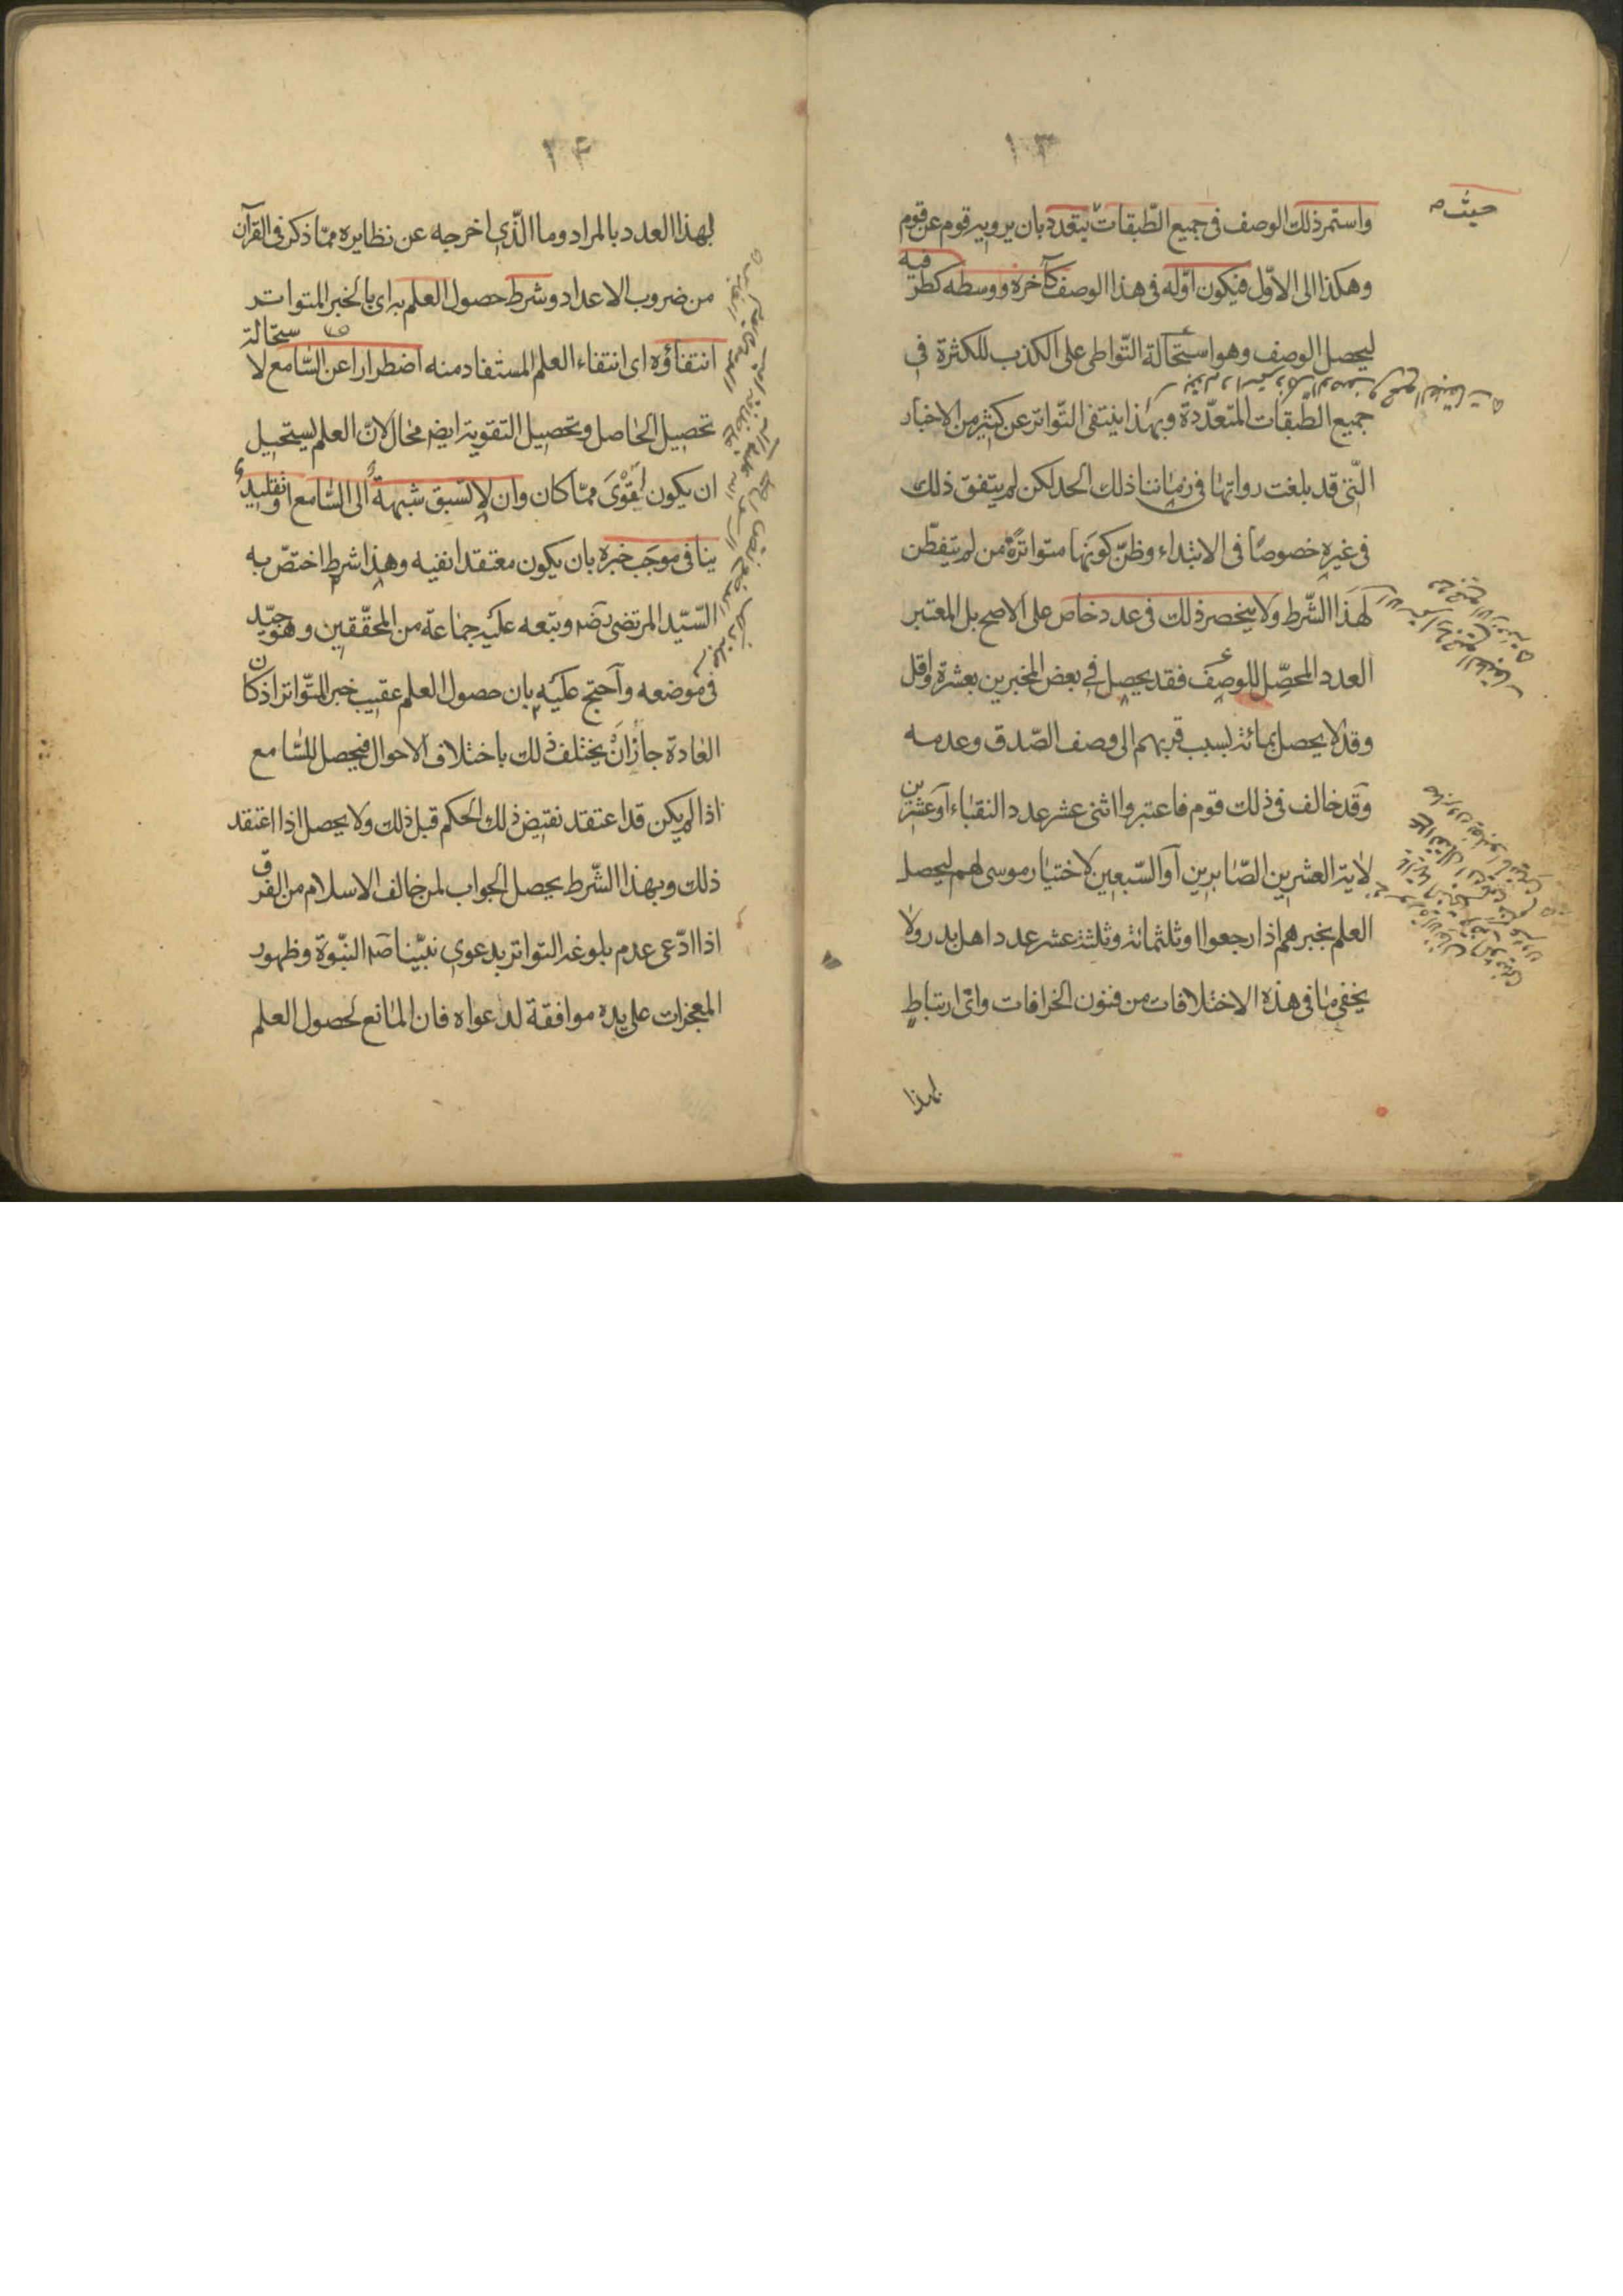 ١٣
واستمر ذلك الوصف فى جميع الطّبقات حيث يتعدد بان يرويه قوم عن قوم
وهكذا الى الاوّل فيكون اوّله فى هذا الوصف كآخره ووسطه كطرفيه
ليحصل الوصف وهو استحالة التّواطى على الكذب للكثرة فى
جميع الطّبقات المتعدّدة وبهذا ينتفى التّواتر عن كثير من الاخبار
الّتى قد بلغت رواتها فى زماننا ذلك الحد لكن لم يتفق ذلك
فى غيره خصوصًا فى الابتداء وظنّ كونها متواترة من لم يتفطّن
لهذا الشّرط ولا ينحصر ذلك فى عدد خاص على الاصح بل المعتبر
العدد المحصّل للوصف فقد يحصل فى بعض المخبرين بعشرة واقل
وقد لا يحصل بمائة بسبب قربهم الى وصف الصّدق وعدمه
وقد خالف فى ذلك قوم فاعتبروا اثنى عشر عدد النقباء او عشرين
لاية العشرين الصّابرين او السّبعين لاختيار موسى لهم ليحصل
العلم بخبرهم اذا رجعوا او ثلثمائة وثلثة عشر عدد اهل بدر ولا
يخفى ما فى هذه الاختلافات من فنون الخرافات واىّ ارتباط
لهذا
١٤
لهذا العدد بالمراد وما الّذى اخرجه عن نظايره ممّا ذكر فى القرآن
من ضروب الاعداد وشرط حصول العلم به اى بالخبر المتواتر
انتفاؤه اى انتفاء العلم المستفاد منه اضطرارا عن السّامع لاستحالة
تحصيل الحاصل وتحصيل التقوية ايضا محال لانّ العلم يستحيل
ان يكون اقوى ممّا كان وان لا تسبق شبهة الى السّامع او تقليد
ينافى موجب خبره بان يكون معتقدا نفيه وهذا شرط اختصّ به
السّيّد المرتضى رضه وتبعه عليه جماعة من المحقّقين وهو جيّد
فى موضعه واحتج عليه بان حصول العلم عقيب خبر المتّواتر اذ كان
العادة جاز ان يختلف ذلك باختلاف الاحوال فيحصل للسّامع
اذا لم يكن قد اعتقد نقيض ذلك الحكم قبل ذلك ولا يحصل اذا اعتقد
ذلك وبهذا الشّرط يحصل الجواب لمن خالف الاسلام من الفرق
اذا ادّعى عدم بلوغه التّواتر بدعوى نبيّنا صه النّبوّة وظهور
المعجزات على يده موافقة لدعواه فان المانع لحصول العلم